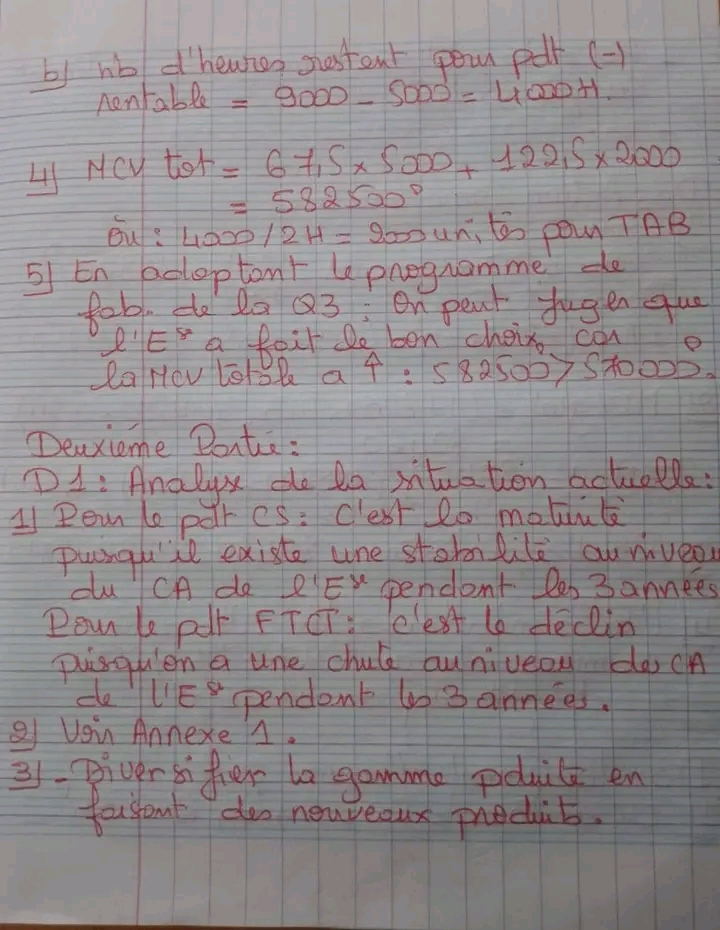 b) nb d'heures restant pour pdt (-)
rentable = 9000 - 5000 = 4000H.
4) MCV tot = 67,5 x 5000 + 122,5 x 2000
= 582500D
Où : 4000/2H = 2000 unités pour TAB
5) En adoptant le programme de
fab. de la Q3 : On peut juger que
l'Ese a fait le bon choix, car
la MCV totale a ↑ : 582500 > 570000D.
Deuxième Partie :
D1 : Analyse de la situation actuelle :
1) Pour le pdt CS : c'est la maturité
puisqu'il existe une stabilité au niveau
du CA de l'Ese pendant les 3 années
Pour le pdt FTCT : c'est le déclin
puisqu'on a une chute au niveau des CA
de l'Ese pendant les 3 années.
2) Voir Annexe 1.
3) - Diversifier la gamme pduite en
faisant des nouveaux produits.